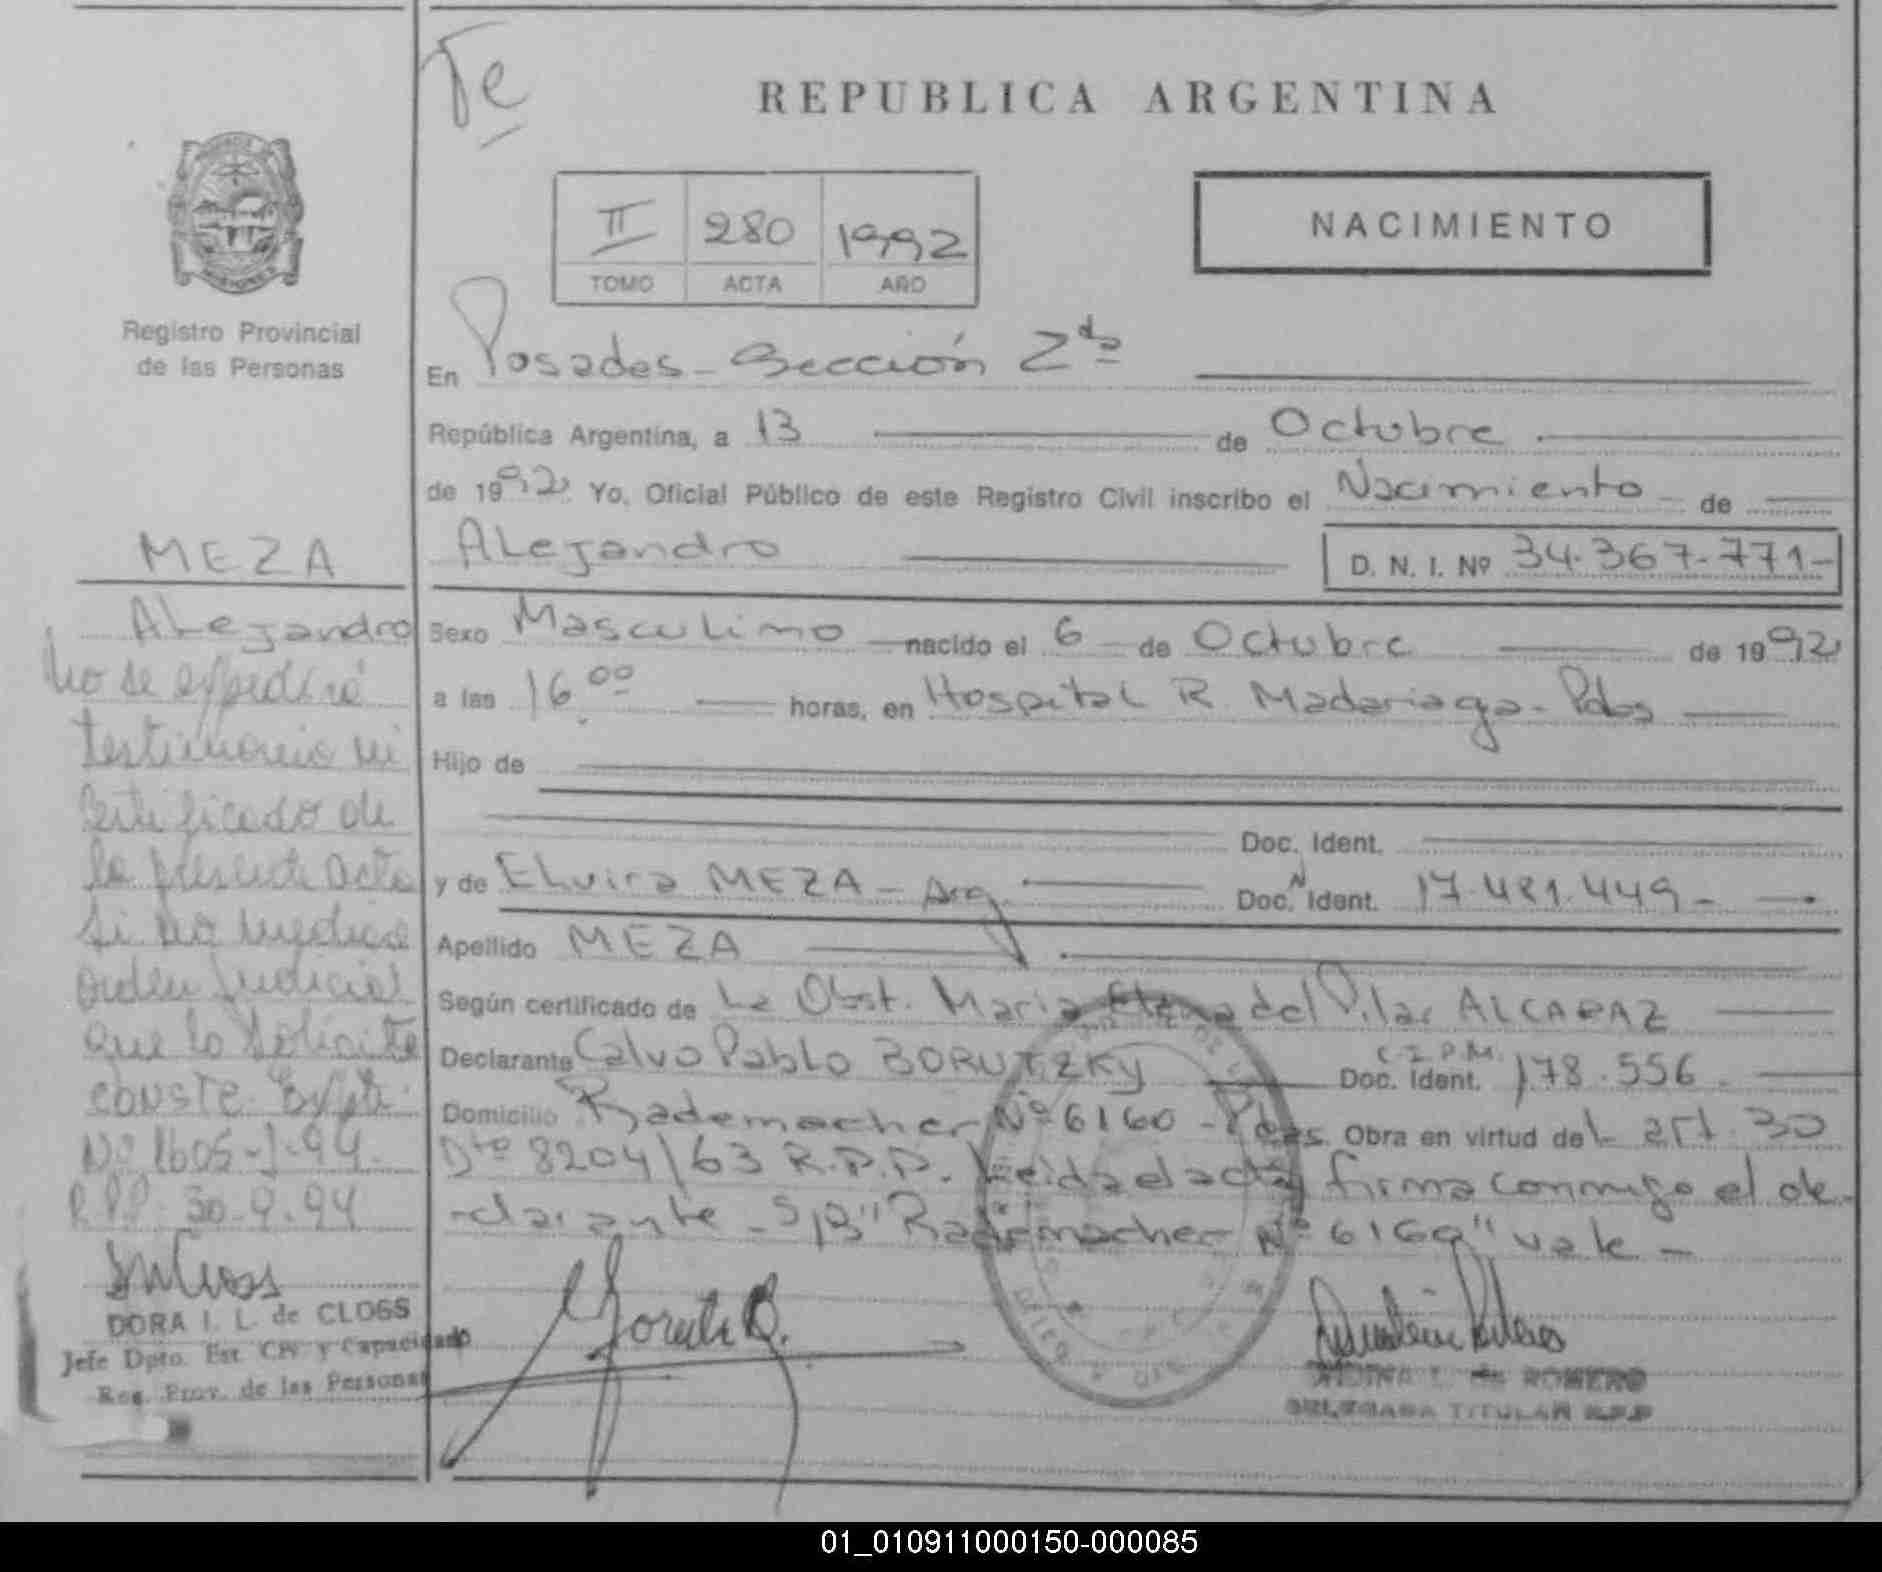 Te
REPUBLICA ARGENTINA
II 280 1992
TOMO ACTA AÑO
NACIMIENTO
Registro Provincial
de las Personas
En Posadas - Sección 2da
República Argentina, a 13 de Octubre
de 1992 Yo, Oficial Público de este Registro Civil inscribo el Nacimiento de
Alejandro D. N. I. Nº 34.367.771-
Sexo Masculino nacido el 6 de Octubre de 1992
a las 16 00 horas, en Hospital R. Madariaga - Pdas
Hijo de
Doc. Ident.
y de Elvira MEZA - Arg. Doc. Ident. 17.481.449-
Apellido MEZA
Según certificado de La Obst. Maria Elena del Pilar ALCARAZ
Declarante Calvo Pablo BORUTZKY C.I.P.M. Doc. Ident. 178.556
Domicilio Rademacher Nº 6160 - Pdas. Obra en virtud del art. 30
Dto 8204/63 R.P.P. Leida el acta firma conmigo el de-
-clarante - S/B "Rademacher Nº 6160" vale -
MEZA
Alejandro
No se expedirá
testimonio ni
certificado de
la presente acta
si no mediare
orden judicial
que lo solicite
conste. Expte.
Nº 1605-J-94
R.P.P. 30-9-94
DORA I. L. de CLOSS
Jefe Dpto. Est. Civ. y Capacidad
Reg. Prov. de las Personas
L. de ROMERO
DELEGADA TITULAR R.P.P
01_010911000150-000085